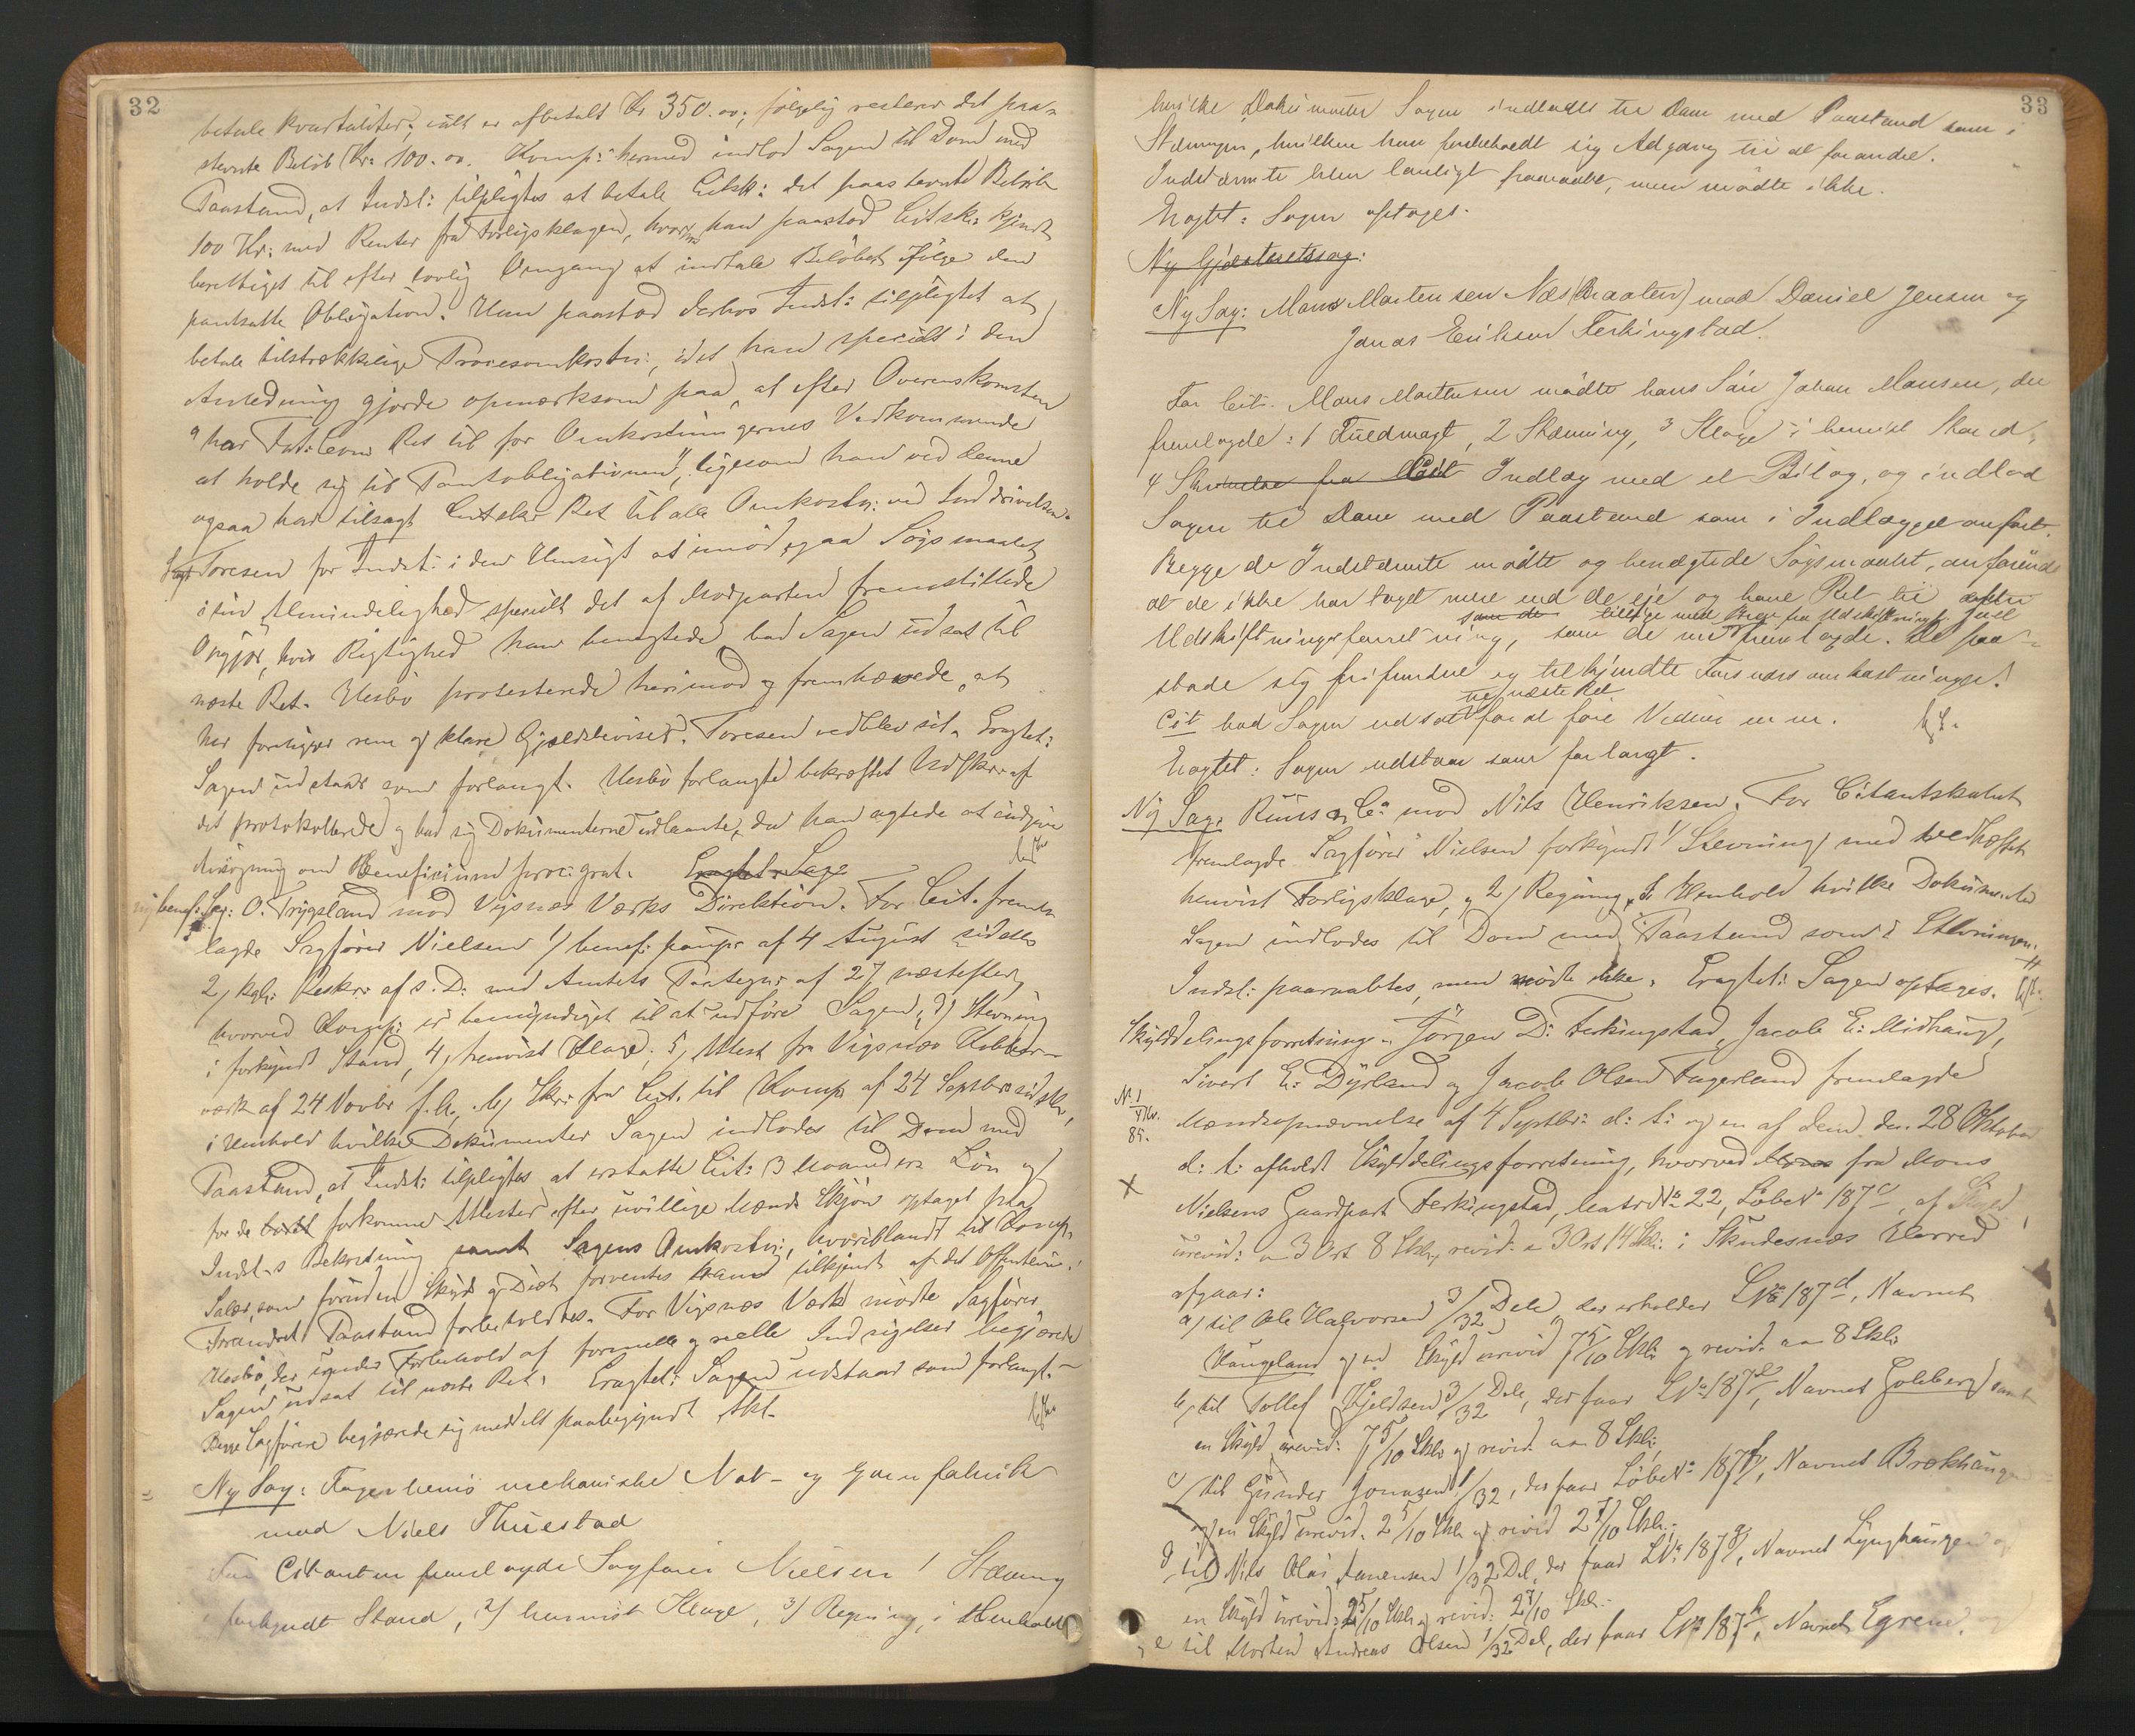 32
betale kvartaliter; ialt er afbetalt Kr 350.00; følgelig resterer det paa-
stevnte Beløb Kr. 100.00. Komp: hermed indlod Sagen til Dom med
Paastand, at Indst: tilpligtes at betale Citsk: det paastevnte Beløb
100 Kr: med Renter fra Forligsklagen, hvorhos han paastod Citsk: kjendt
berettiget til efter lovlig Omgang at indtale Beløbet ifølge den
pantsatte Obligation. Han paastod derhos Indst: tilpligtet at
betale tilstrækkelige Procesomkostn:, idet han specielt i den
Anledning gjorde opmærksom paa, at efter Overenskomsten
"har Ret til for Omkostningernes Vedkommende
at holde sig til Pantobligationen", ligesom han ved denne
ogsaa har tilsagt Citsk: Ret til alle Omkostn: ved Inddrivelsen.
Toresen for Indst: i den Hensigt at imødegaa Søgsmaalet
i sin Almindelighed specielt det af Modparten fremstillede
Opgjør, hvis Rigtighed han benegtede bad Sagen udsat til
næste Ret. Hesbø protesterede herimod og fremhævede, at
her foreligger rene og klare Gjældsbeviser. Toresen vedblev sit. Eragtet:
Sagen udstaar som forlangt. Hesbø forlangte bekræftet Udskr: af
det protokollerede og bad sig Dokumenterne udlaante, da han agtede at indgive
Ansøgning om Beneficium proc: grat.
Ny benef: Sag: O. Trygsland mod Vigsnæs Værks Direktion. For Cit. frem-
lagde Sagfører Nielsen 1/ benef: paup: af 4 August sidstl:
2/ kgl: Reskr: af s. D: med Amtets Paategn: af 27 næstefter,
hvorved Komp: er bemyndiget til at udføre Sagen, 3/ Stevning
i forkyndt Stand, 4/ henvist Klage, 5/ Attest fra Vigsnæs Kobber-
værk af 24 Novbr f. A., 6/ Skr: fra Cit. til Komp af 24 Septbr sidstl:,
i Henhold hvilke Dokumenter Sagen indlodes til Dom med
Paastand, at Indst: tilpligtes at erstatte Cit: 3 Maaneders Løn og
for de forkomne Attester efter uvillige Mænds Skjøn optaget paa
Indst:s Bekostning samt Sagens Omkostn:, hvoriblandt til Komp:
Salær, som foruden Skyds og Diæt forventes ham tilkjendt af det Offentlige.
Forandret Paastand forbeholdtes. For Vigsnæs Værk mødte Sagfører
Hesbø, der under Forbehold af formelle og reelle Indsigelser begjærede
Sagen udsat til næste Ret. Eragtet: Sagen udstaar som forlangt.
Begge Sagførere begjærede sig meddelt paabegyndt Akt.
Ny Sag: Fagerheims mekaniske Not- og Garnfabrik
mod Niels Thuestad
For Citanten fremlagde Sagfører Nielsen 1 Stævning
i forkyndt Stand, 2/ henvist Klage, 3/ Regning, i Henhold
33
hvilke Dokumenter Sagen indlodes til Dom med Paastand som i
Stævningen, hvilken han forbeholdt sig Adgang til at forandre.
Indstævnte blev lovligt paaraabt, men mødte ikke.
Eragtet: Sagen optages.
Ny Gjesteretssag:
Ny Sag: Mons Mortensen Næs (Braaten) mod Daniel Jensen og
Jonas Eriksen Ferkingstad.
For Cit. Mons Mortensen mødte hans Søn Johan Monsen, der
fremlagde: 1 Fuldmagt, 2 Stævning, 3 Klage i henvist Stand,
4 Skrivelse fra Indlæg med et Bilag, og indlod
Sagen til Dom med Paastand som i Indlægget anført.
Begge de Indstævnte mødte og benægtede Søgsmaalet, anførende
at de ikke har taget mere end de eje og have Ret til efter
som de tillige med fra
Udskiftningsforretning, som de fremlagde. De paa-
stode sig frifundne og tilkjendte Sagsomkostninger.
til næste Ret
Cit bad Sagen udsat for at føre Vidner m m.
Eragtet: Sagen udstaar som forlangt.
Ny Sag: Ruus & Co mod Nils Henriksen. For Citantskabet
fremlagde Sagfører Nielsen forkyndt 1/ Stevning med vedhæftet
henvist Forligsklage, og 2/ Regning, i Henhold hvilke Dokumenter
Sagen indlodes til Dom med Paastand som i Stevningen.
Indst: paaraabtes, men mødte ikke. Eragtet: Sagen optages.
Skylddelingsforretning. Jørgen D: Ferkingstad, Jacob E: Midhaug,
Sivert E: Dyrland og Jacob Olsen Fagerland fremlagde
No 1
85.
Mændsopnævnelse af 4 Septbr: d: A: og en af dem den 28 Oktober
d: A: afholdt Skylddelingsforretning, hvorved fra Mons
X
Nielsens Gaardpart Ferkingstad, Matr No 22, Løbe No 187c, af Skyld
urevid: 3 Ort 8 Skl:, revid: 3 Ort 14 Skl: i Skudesnæs Herred
afgaar:
a/ til Ole Halvorsen 3/32 Dele, der erholder L No 187d, Navnet
Haugeland og en Skyld urevid 7 5/10 Skl: og revid. 8 Skl:
b/ til Tollef Kjeldsen 3/32 Dele, der faar L No 187e, Navnet Goleberg samt
en Skyld urevid: 7 5/10 Skl: og revid. 8 Skl:
c/ til Gunder Jonasen 1/32, der faar Løbe No 187f, Navnet Brækhaugen
og en Skyld urevid. 2 5/10 Skl: og revid 2 7/10 Skl:
d til Nils Olai 1/32 Del, der faar L No 187g, Navnet Lynghaugen og
en Skyld urevid: 2 5/10 Skl: og revid: 2 7/10 Skl:
e til Morten Andreas Olsen 1/32 Del, der faar L No 187h, Navnet Egrene.